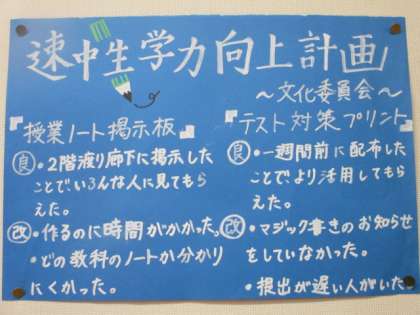 速中生学力向上計画
～文化委員会～
『授業ノート掲示板』
良・2階渡り廊下に掲示した
ことで、いろんな人に見てもら
えた。
改・作るのに時間がかかった。
・どの教科のノートか分かり
にくかった。
『テスト対策プリント』
良・一週間前に配布した
ことで、より活用してもら
えた。
改・マジック書きのお知らせ
をしていなかった。
・提出が遅い人がいた。